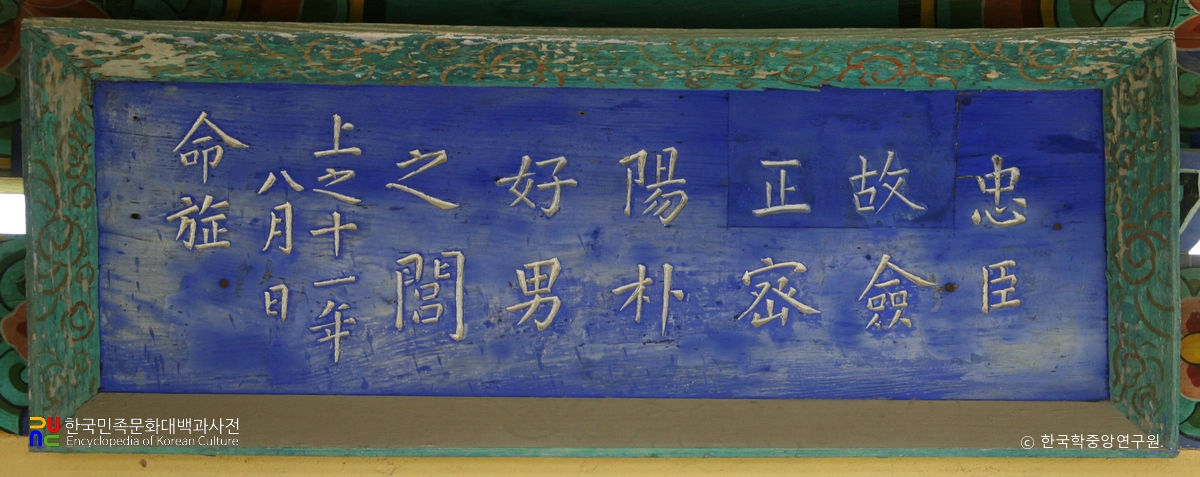 忠臣
故僉
正密
陽朴
好男
之閭
上之十一年
八月 日
命旌
한국민족문화대백과사전
Encyclopedia of Korean Culture
© 한국학중앙연구원.